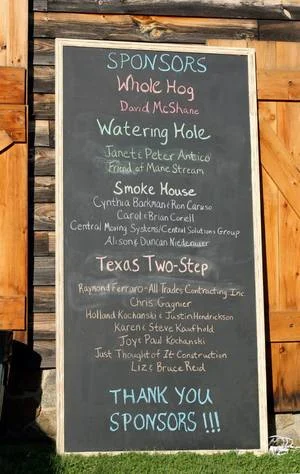 SPONSORS
Whole Hog
David McShane
Watering Hole
Janet & Peter Antico
Friend of Mane Stream
Smoke House
Cynthia Barkman & Ron Caruso
Carol & Brian Coriell
Central Moving Systems/Central Solutions Group
Alison & Duncan Niederauer
Texas Two-Step
Raymond Ferraro-All Trades Contracting Inc
Chris Gagnier
Holland Kochanski & Justin Hendrickson
Karen & Steve Kaufhold
Joy & Paul Kochanski
Just Thought of It Construction
Liz & Bruce Reid
THANK YOU
SPONSORS !!!